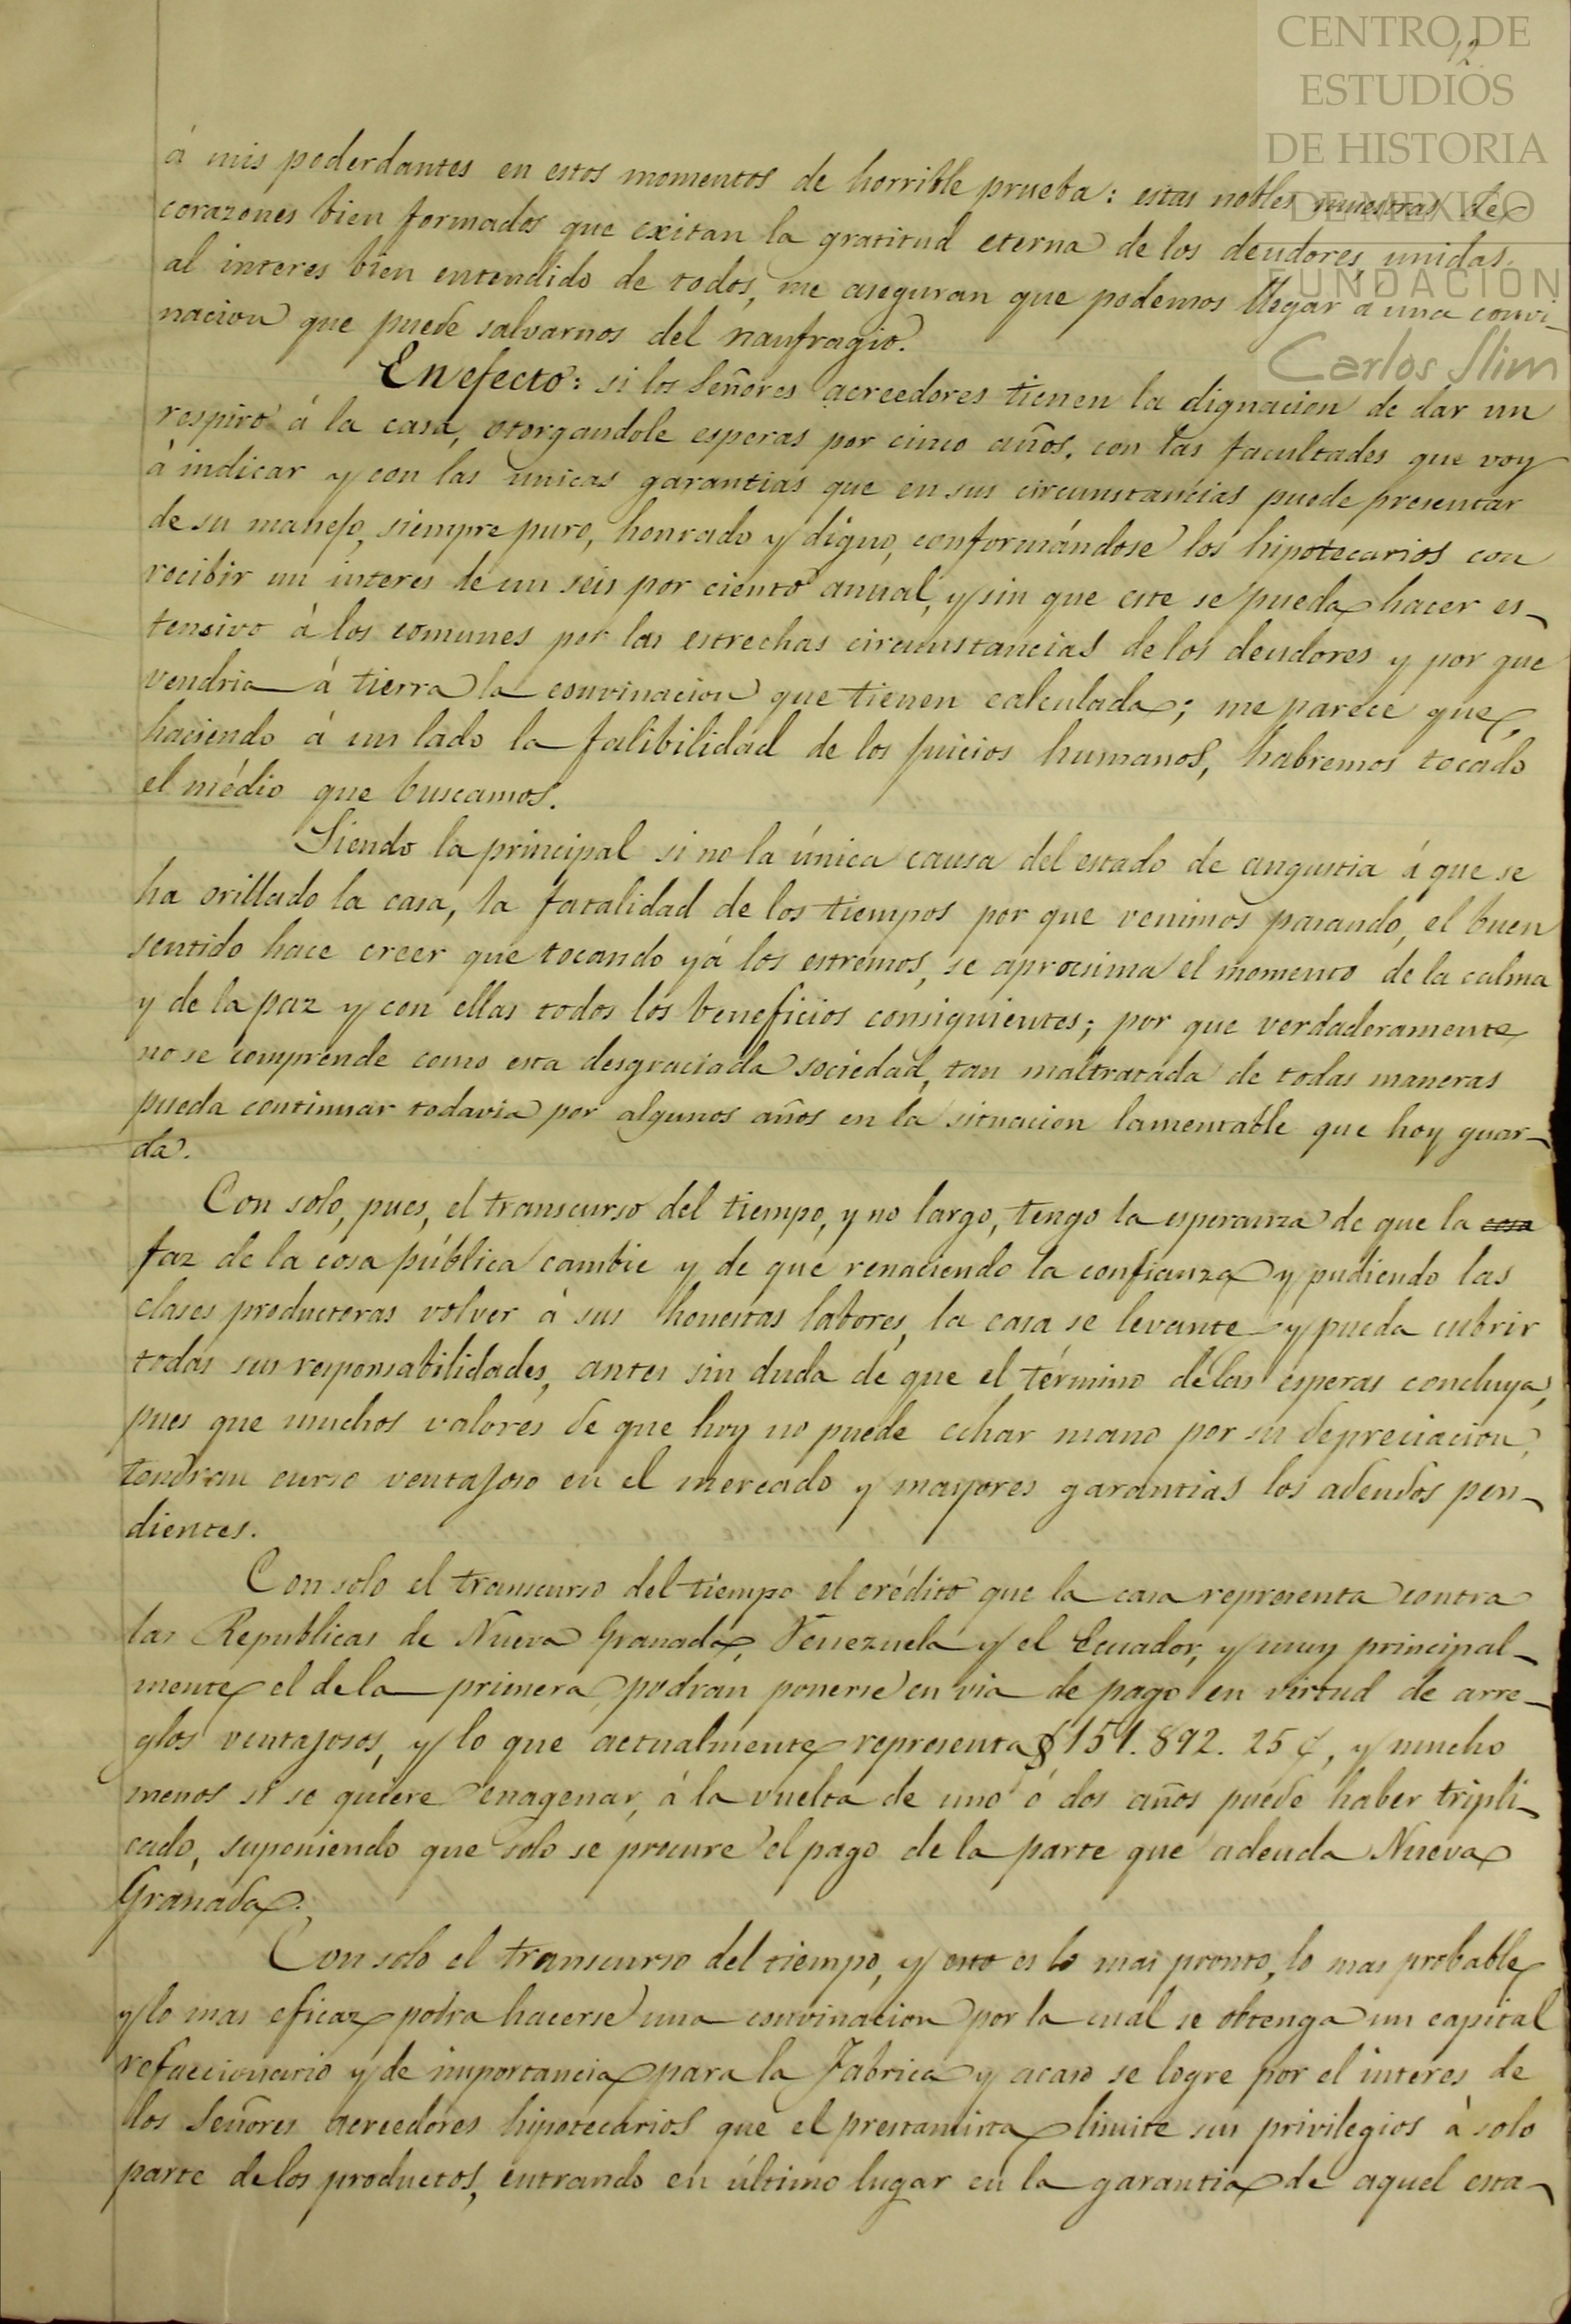 CENTRO DE
ESTUDIOS
DE HISTORIA
DE MEXICO
FUNDACIÓN
Carlos Slim
12
á mis poderdantes en estos momentos de horrible prueba: estas nobles muestras de
corazones bien formados que exitan la gratitud eterna de los deudores, unidas
al interes bien entendido de todos, me aseguran que podemos llegar á una convi-
nacion que puede salvarnos del naufragio.
En efecto: si los Señores acreedores tienen la dignacion de dar un
respiro á la casa, otorgandole esperas por cinco años, con las facultades que voy
à indicar y con las unicas garantias que en sus circunstancias puede presentar
de su manejo, siempre puro, honrado y digno, conformándose los hipotecarios con
recibir un interes de un seis por ciento anual, y sin que este se pueda hacer es-
tensivo à los comunes por las estrechas circunstancias de los deudores y por que
vendria á tierra la convinacion que tienen calculada; me parece que,
haciendo á un lado la falibilidad de los juicios humanos, habremos tocado
el médio que buscamos.
Siendo la principal si no la única causa del estado de angustia á que se
ha orillado la casa, la fatalidad de los tiempos por que venimos pasando, el buen
sentido hace creer que tocando yá los estremos, se aprocsima el momento de la calma
y de la paz y con ellas todos los beneficios consiguientes; por que verdaderamente
no se comprende como esta desgraciada sociedad, tan maltratada de todas maneras
pueda continuar todavia por algunos años en la situacion lamentable que hoy guar-
da.
Con solo, pues, el transcurso del tiempo, y no largo, tengo la esperanza de que la cosa
faz de la cosa pública cambie y de que renaciendo la confianza y pudiendo las
clases productoras volver à sus honestas labores, la casa se levante y pueda cubrir
todas sus responsabilidades, antes sin duda de que el término de las esperas concluya,
pues que muchos valores de que hoy no puede echar mano por su depreciacion,
tendran curso ventajoso en el mercado y mayores garantias los adeudos pen-
dientes.
Con solo el transcurso del tiempo el crédito que la casa representa contra
las Republicas de Nueva Granada, Venezuela y el Ecuador, y muy principal-
mente el de la primera, podrán ponerse en via de pago en virtud de arre-
glos ventajosos, y lo que actualmente representa $151.892. 25 ¢, y mucho
menos si se quiere enagenar, á la vuelta de uno ó dos años puede haber tripli-
cado, suponiendo que solo se procure el pago de la parte que adeuda Nueva
Granada.
Con solo el transcurso del tiempo, y esto es lo mas pronto, lo mas probable
y lo mas eficaz podra hacerse una convinacion por la cual se obtenga un capital
refaccionario y de importancia para la Fabrica y acaso se logre por el interes de
los Señores acreedores hipotecarios que el prestamista limite sus privilegios à solo
parte de los productos, entrando en último lugar en la garantia de aquel esta-